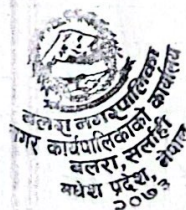 बलरा नगरपालिका
नगर कार्यपालिकाको कार्यालय
बलरा, सर्लाही
मधेश प्रदेश, नेपाल
२०७३